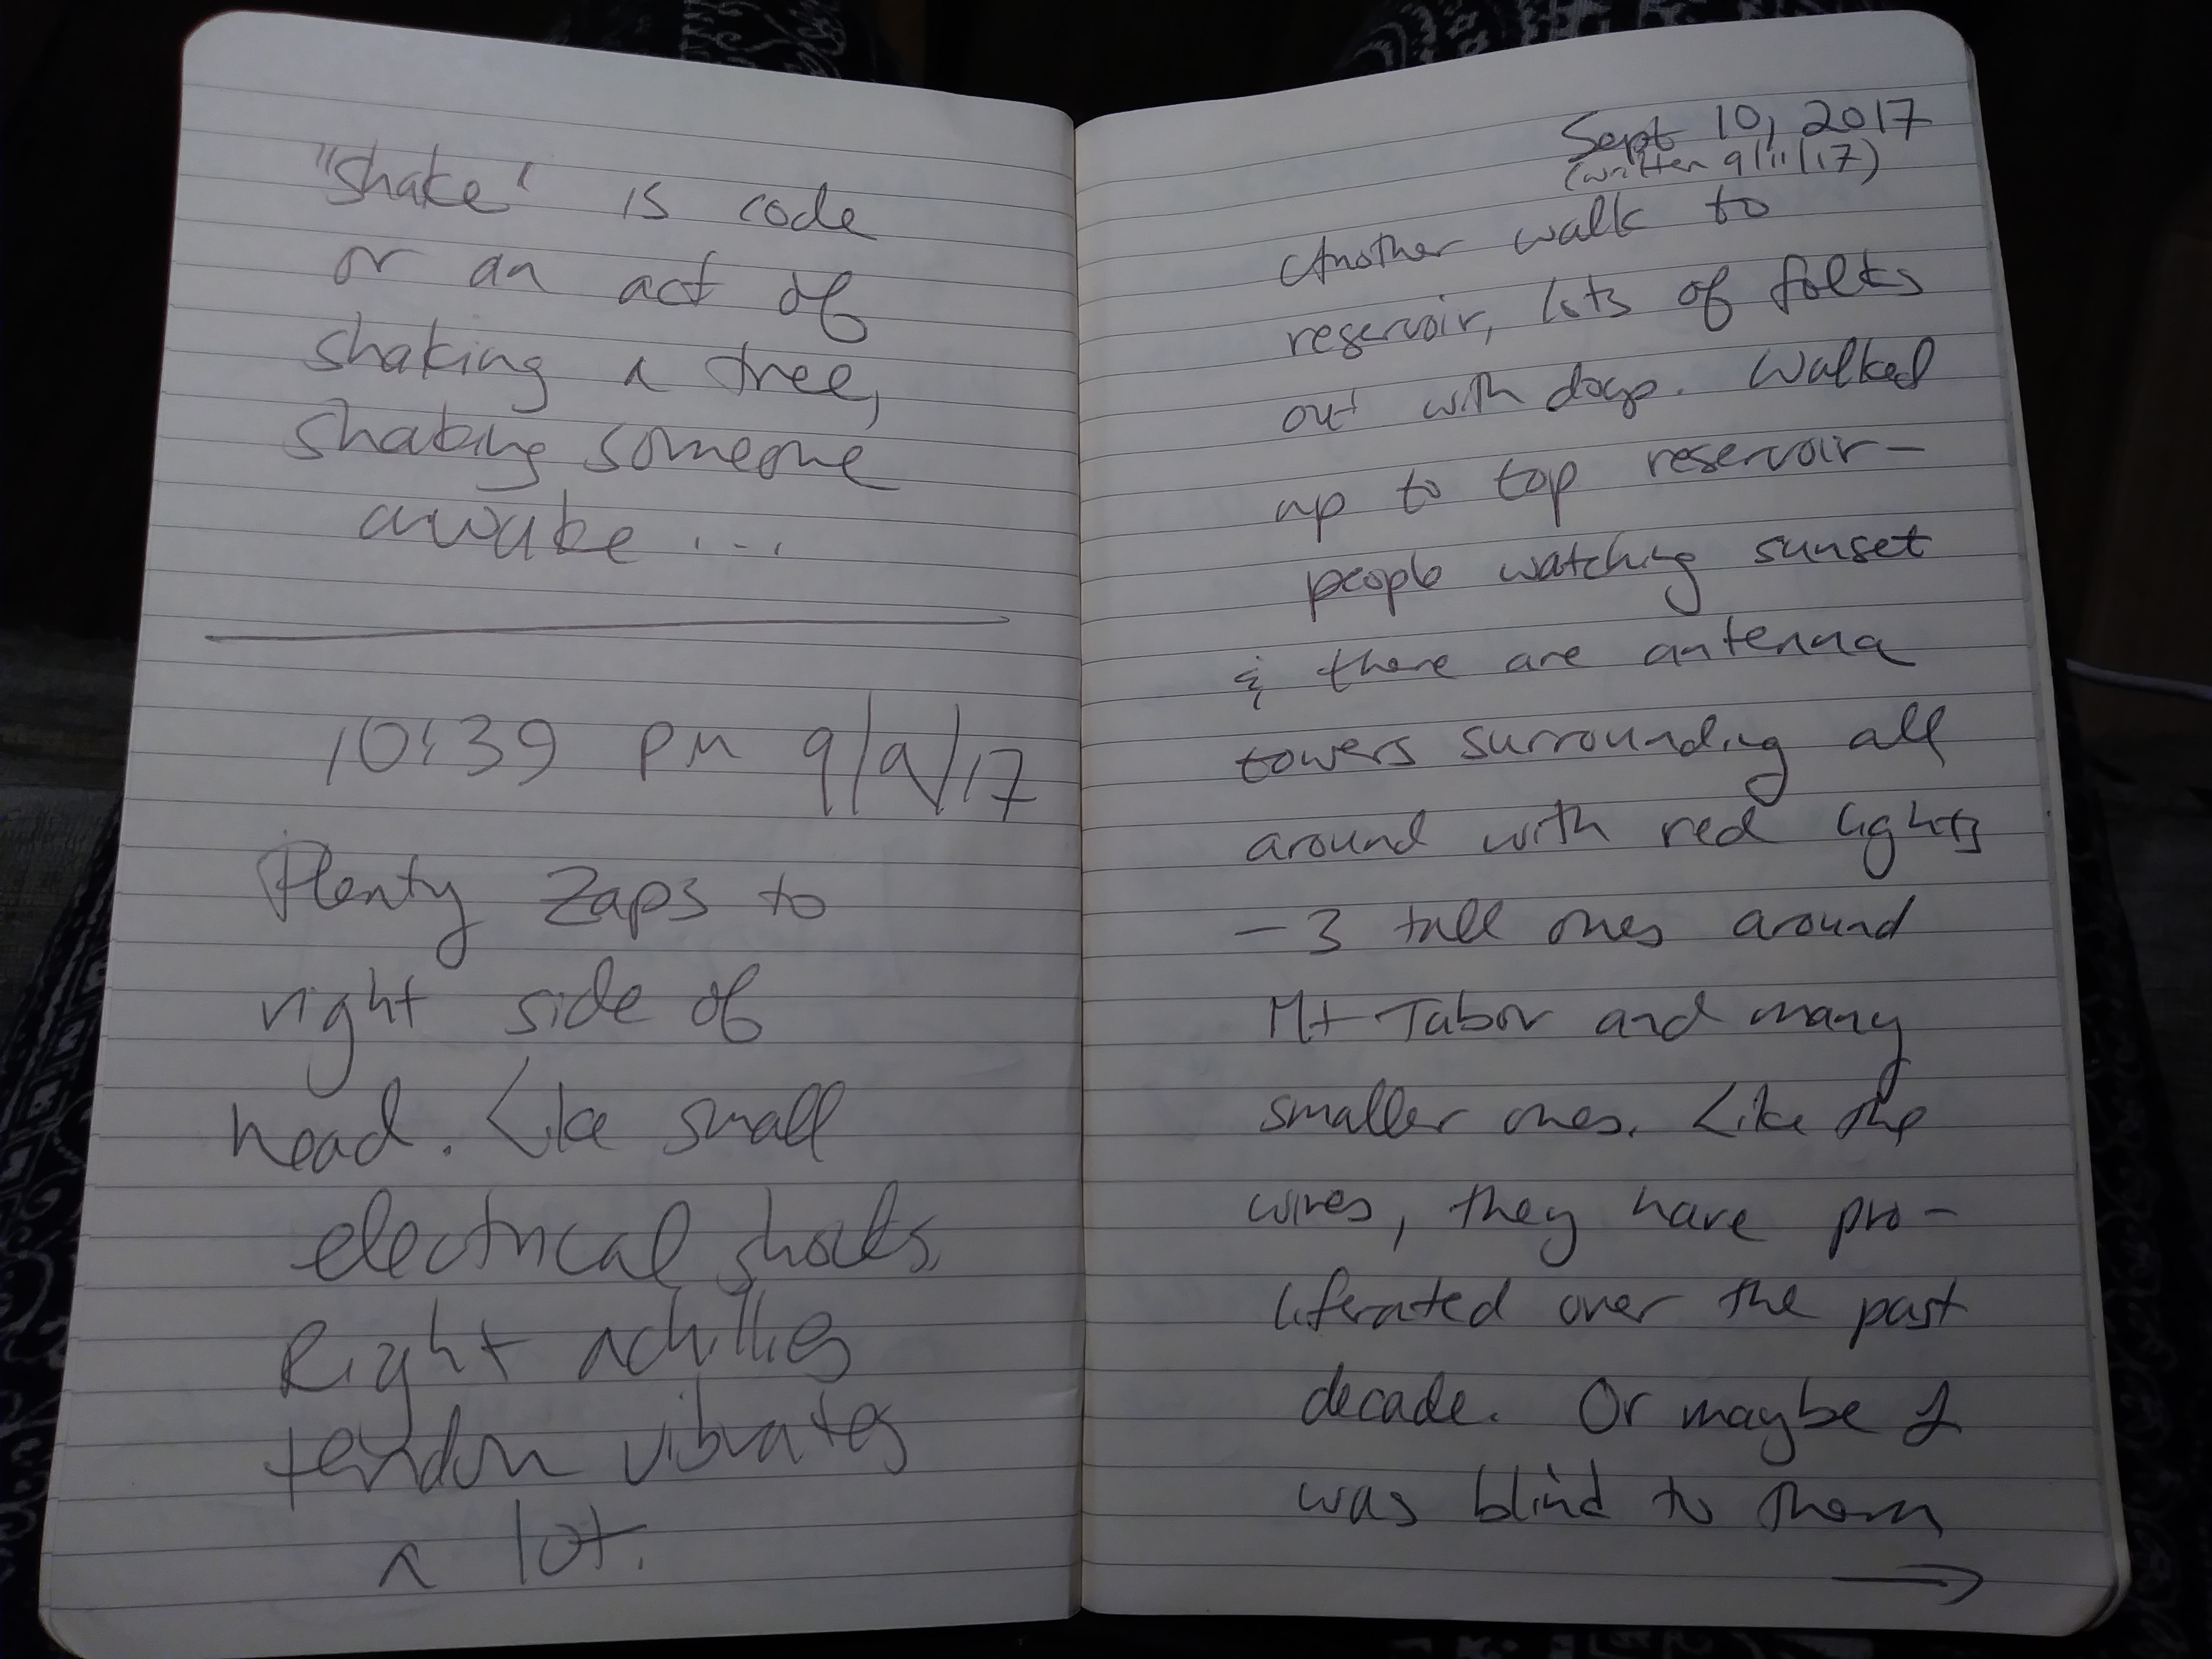 "Shake" is code
or an act of
shaking a tree,
shaking someone
awake ...
10:39 PM 9/9/17
Plenty Zaps to
right side of
head. Like small
electrical shocks.
Right achilles
tendon vibrates
a lot.
Sept 10, 2017
(written 9/11/17)
Another walk to
reservoir, lots of folks
out with dogs. Walked
up to top reservoir—
people watching sunset
& there are antenna
towers surrounding all
around with red lights
— 3 tall ones around
Mt Tabor and many
smaller ones. Like the
wires, they have pro-
liferated over the past
decade. Or maybe I
was blind to them
→